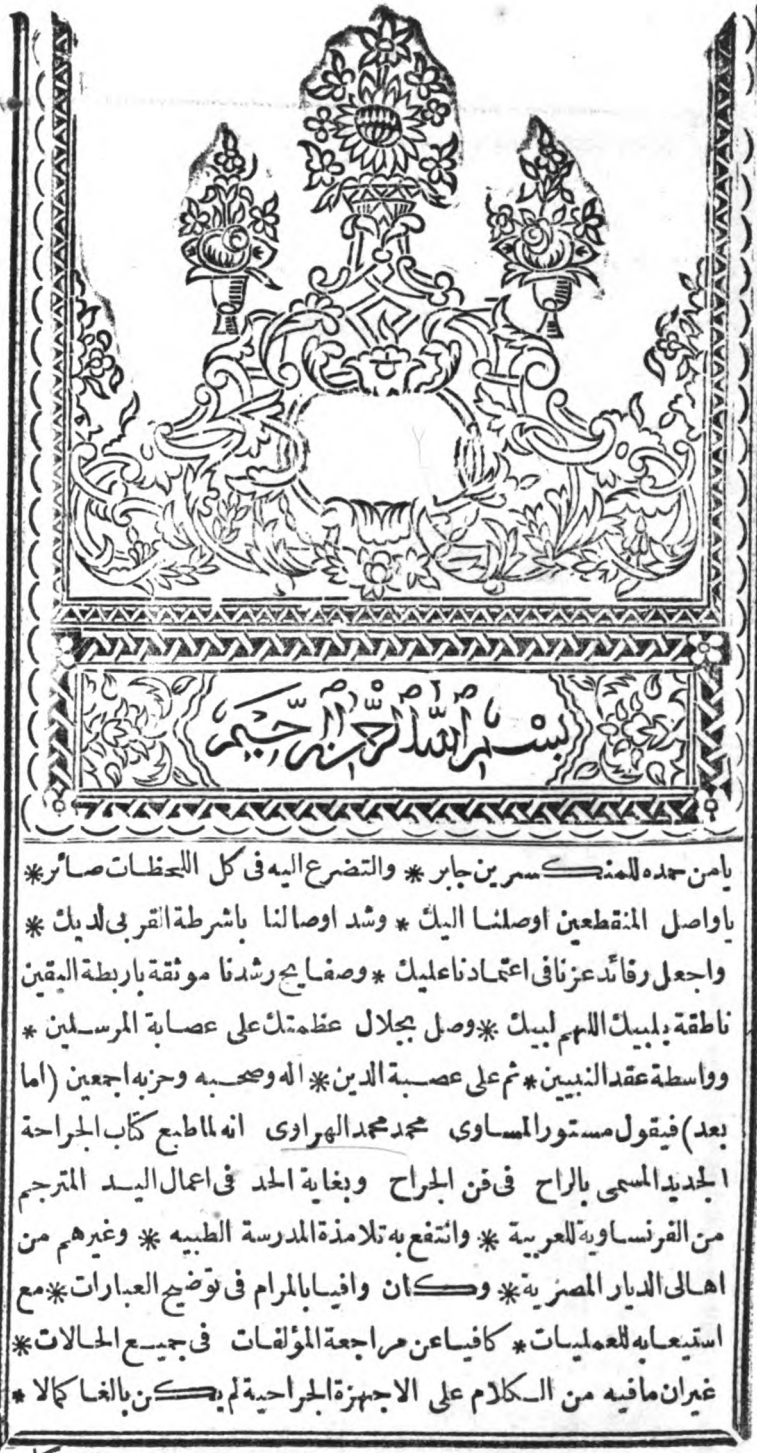 بسم الله الرحمن الرحيم
يا من حمده للمنكسرين جابر * والتضرع اليه فى كل اللحظات صائر *
يا واصل المنقطعين اوصلنا اليك * وشد اوصالنا باشرطة القربى لديك *
واجعل رفائد عزنا فى اعتمادنا عليك * وصفايح رشدنا موثقة باربطة اليقين
ناطقة بلبيك اللهم لبيك * وصل بجلال عظمتك على عصابة المرسلين *
وواسطة عقد النبيين * ثم على عصبة الدين * اله وصحبه وحزبه اجمعين (اما
بعد) فيقول مستور المساوى محمد محمد الهراوى انه لما طبع كتاب الجراحة
الجديد المسمى بالراح فى فن الجراح وبغاية الحد فى اعمال اليد المترجم
من الفرنساوية للعربية * وانتفع به تلامذة المدرسة الطبيه * وغيرهم من
اهالى الديار المصرية * وكان وافيا بالمرام فى توضيح العبارات * مع
استيعابه للعمليات * كافيا عن مراجعة المؤلفات فى جميع الحالات *
غير ان ما فيه من الكلام على الاجهزة الجراحية لم يكن بالغا كمالا *